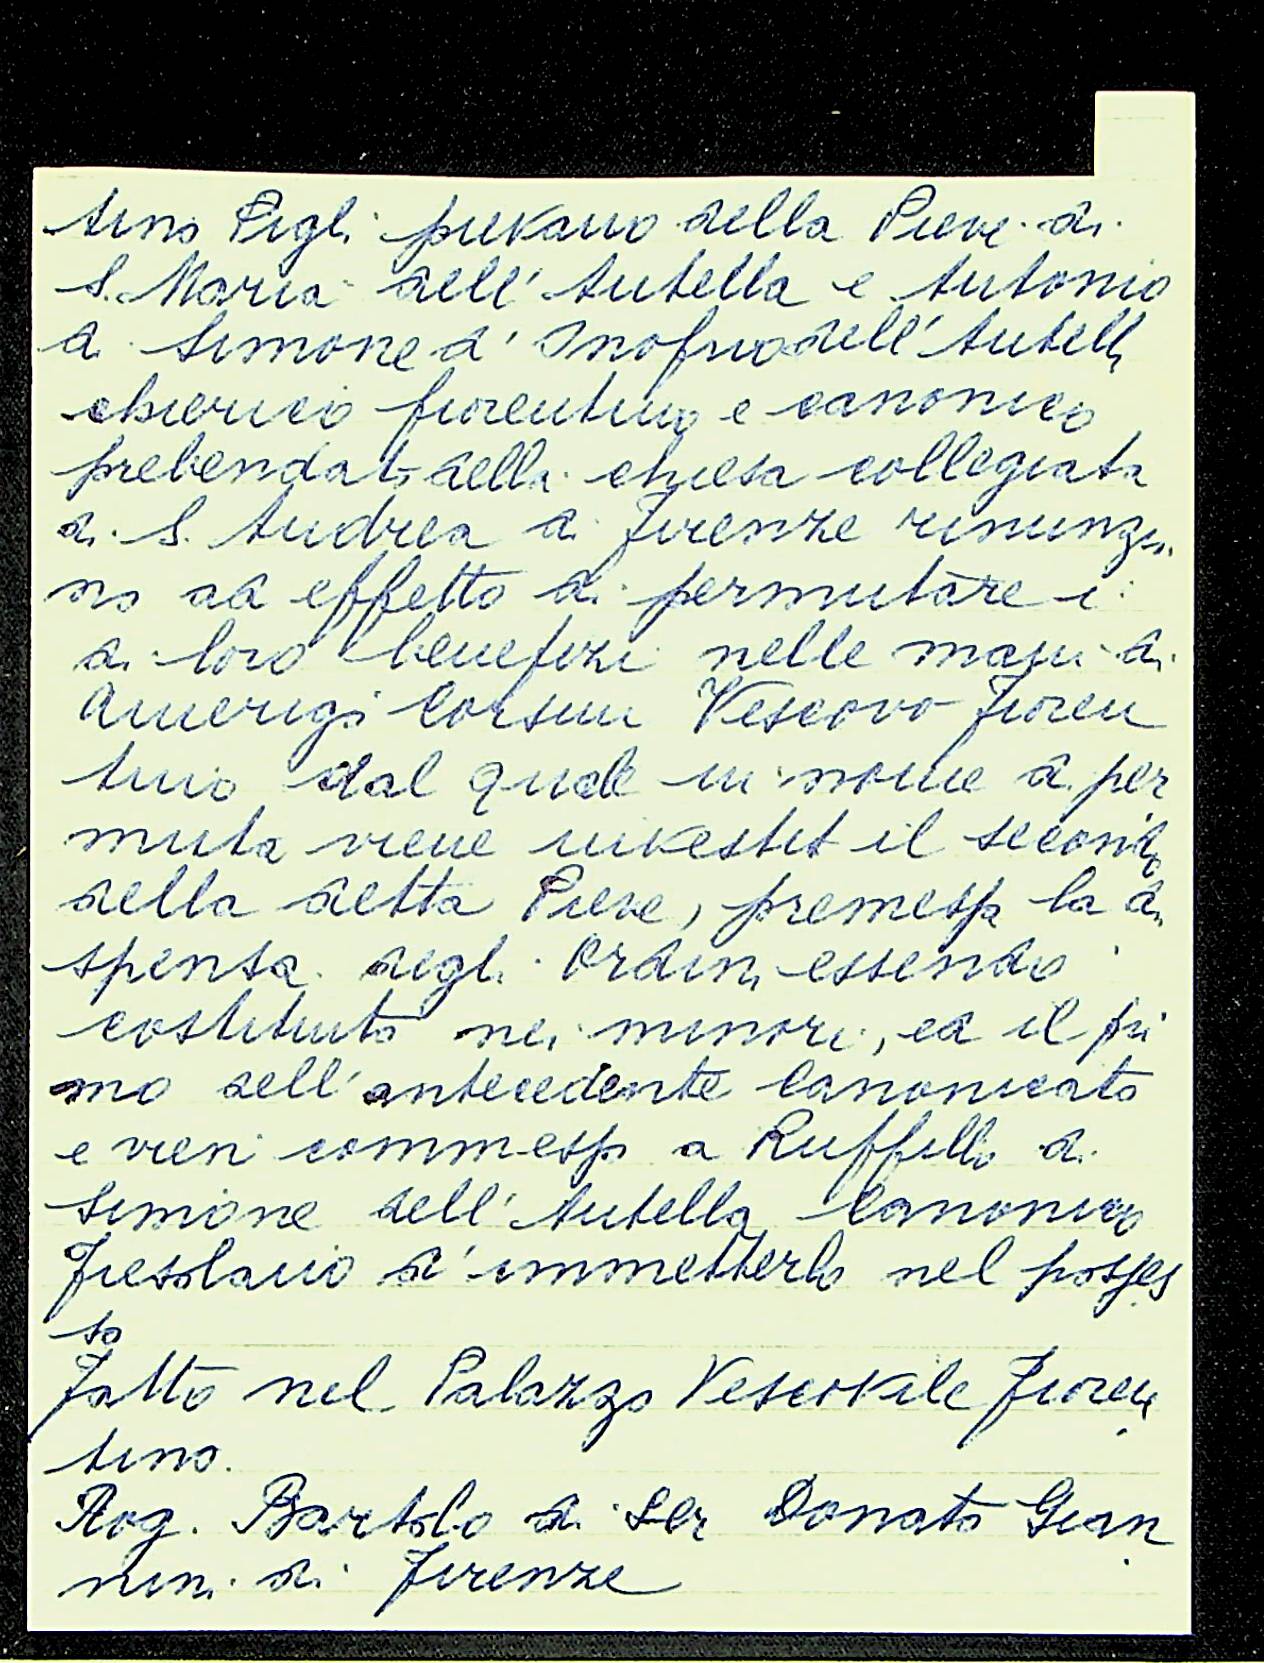 tino Pigli pievano della Pieve di
S. Maria dell'Antella e Antonio
di Simone d'Inofrio dell'Antella
chierico fiorentino e canonico
prebendato della chiesa collegiata
di S. Andrea di Firenze rinunzia
no ad effetto di permutare i
di loro benefizi nelle mani di
Amerigo Corsini Vescovo Fioren
tino dal quale in nome di per
muta viene investito il secondo
della detta Pieve, premessa la di
spensa degli Ordini essendo
costituito nei minori, ed il pri
mo dell'antecedente Canonicato
e vien commesso a Ruffello di
Simone dell'Antella Canonico
Fiesolano d'immetterlo nel posses
so
Fatto nel Palazzo Vescovile Fioren
tino.
Rog. Bartolo di Ser Donato Gian
nini di Firenze